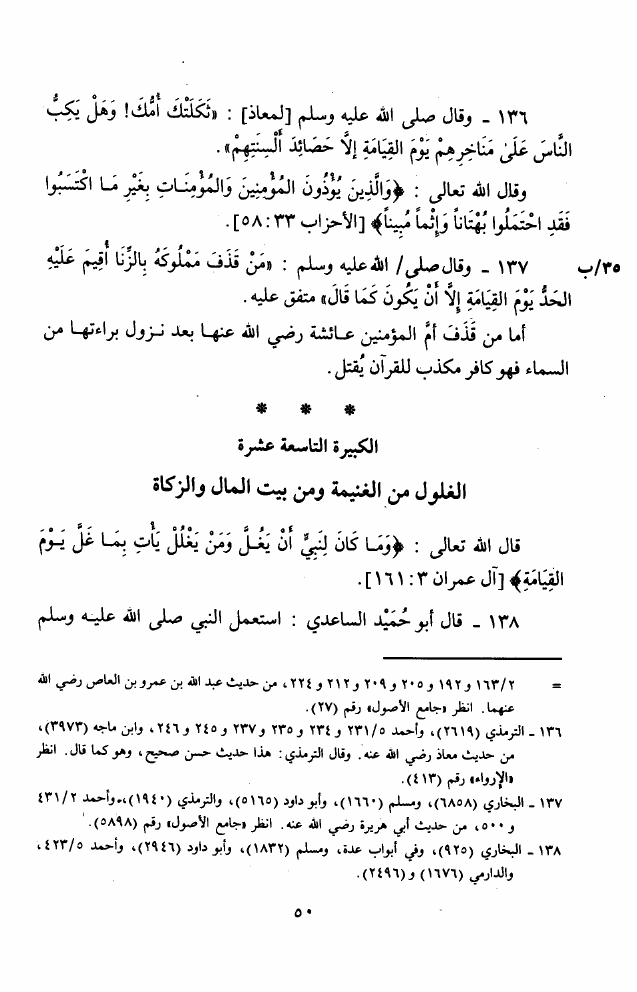 ١٣٦ ـ وقال صلى الله عليه وسلم [لمعاذ] : «ثَكَلَتْكَ أُمُّكَ! وَهَلْ يَكِبُّ
النَّاسَ عَلَىٰ مَنَاخِرِهِمْ يَوْمَ القِيَامَةِ إلاَّ حَصَائِدَ أَلْسِنَتِهِمْ» .
وقال الله تعالى : ﴿وَالَّذِينَ يُؤْذُونَ المُؤْمِنِينَ وَالمُؤْمِنَـاتِ بِغَيْرِ مَـا اكْتَسَبُوا
فَقَدِ احْتَمَلُوا بُهْتَاناً وَإِثْماً مُبِيناً﴾ [الأحزاب ٣٣ : ٥٨] .
١٣٧ ـ وقال صلى/ الله عليه وسلم : «مَنْ قَذَفَ مَمْلُوكَهُ بِالزِّنَا أُقِيمَ عَلَيْهِ
٣٥/ب
الحَدُّ يَوْمَ القِيَامَةِ إلاَّ أَنْ يَكُونَ كَمَا قَالَ» متفق عليه .
أما من قَذَفَ أمَّ المؤمنين عـائشة رضي الله عنهـا بعد نـزول براءتهـا من
السماء فهو كافر مكذب للقرآن يُقتل .
* * *
الكبيرة التاسعة عشرة
الغلول من الغنيمة ومن بيت المال والزكاة
قال الله تعالى : ﴿وَمَـا كَانَ لِنَبِيٍّ أَنْ يَغُـلَّ وَمَنْ يَغْلُلْ يَأْتِ بِمَـا غَلَّ يَـوْمَ
القِيَامَةِ﴾ [آل عمران ٣ : ١٦١] .
١٣٨ ـ قال أبو حُمَيْد الساعدي : استعمل النبي صلى الله عليـه وسلم
= ١٦٣/٢ و١٩٢ و ٢٠٥ و ٢٠٩ و ٢١٢ و ٢٢٤، من حديث عبد الله بن عمرو بن العاص رضي الله
عنهما. انظر «جامع الأصول» رقم (٢٧).
١٣٦ ـ الترمذي (٢٦١٩)، وأحمد ٢٣١/٥ و ٢٣٤ و ٢٣٥ و ٢٣٧ و ٢٤٥ و ٢٤٦، وابن ماجه (٣٩٧٣)،
من حديث معاذ رضي الله عنه. وقال الترمذي: هذا حديث حسن صحيح، وهو كما قال. انظر
«الإرواء» رقم (٤١٣).
١٣٧ ـ البخاري (٦٨٥٨)، ومسلم (١٦٦٠)، وأبو داود (٥١٦٥)، والترمذي (١٩٤٠)، وأحمد ٤٣١/٢
و ٥٠٠، من حديث أبي هريرة رضي الله عنه. انظر «جامع الأصول» رقم (٥٨٩٨).
١٣٨ ـ البخاري (٩٢٥)، وفي أبواب عدة، ومسلم (١٨٣٢)، وأبو داود (٢٩٤٦)، وأحمد ٤٢٣/٥،
والدارمي (١٦٧٦) و(٢٤٩٦).
٥٠